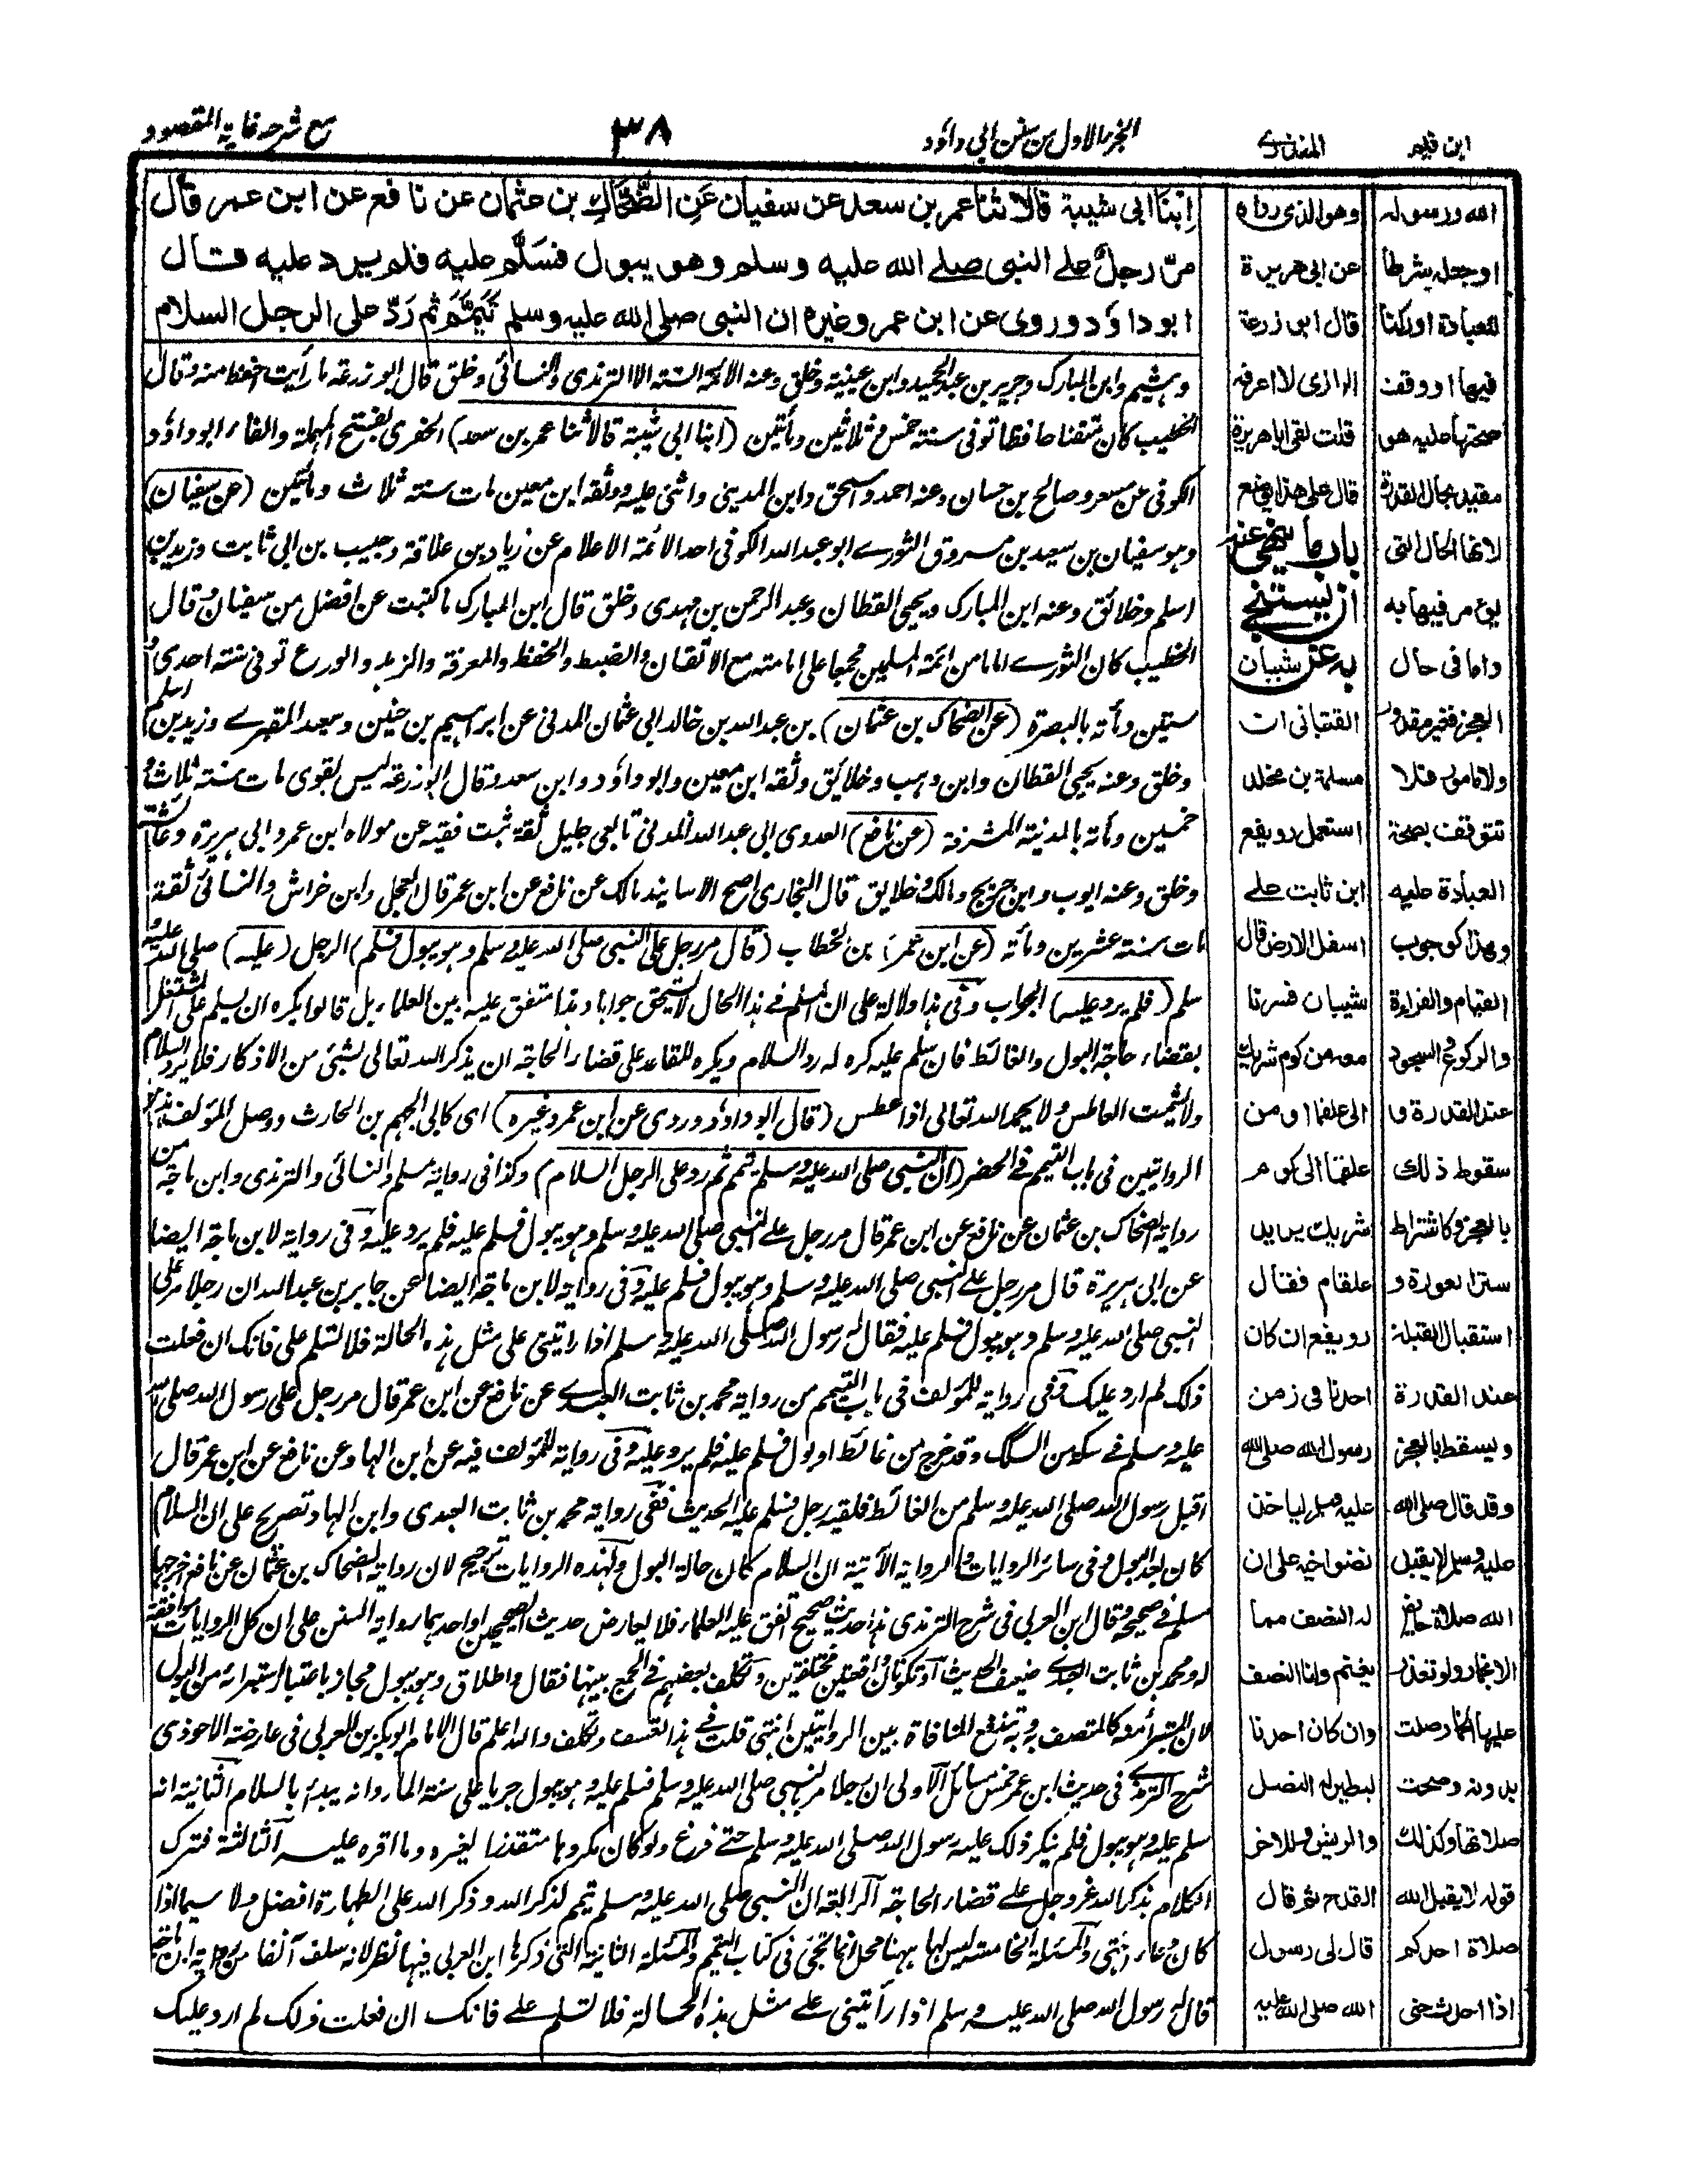 ابن قيم
المنذري
الجزء الاول من سنن ابي داود
٣٨
مع شرحه غاية المقصود
ابنا ابي شيبة قالا ثنا عمر بن سعد عن سفيان عن الضحاك بن عثمان عن نافع عن ابن عمر قال
مر رجل على النبي صلى الله عليه وسلم وهو يبول فسلم عليه فلم يرد عليه قال
ابو داود وروي عن ابن عمر وغيره ان النبي صلى الله عليه وسلم تيمم ثم رد على الرجل السلام
وهشيم وابن المبارك وجرير بن عبد الحميد وابن عيينة وخلق وعنه الائمة الستة الا الترمذي والنسائي وخلق قال ابو زرعة ما رأيت احفظ منه وقال
الخطيب كان متقنا حافظا توفي سنة خمس وثلاثين ومأتين (ابنا ابي شيبة قالا ثنا عمر بن سعد) الحفري بفتح المهملة والفاء ابو داود
الكوفي عن مسعر وصالح بن حسان وعنه احمد واسحق وابن المديني واثنى عليه ووثقه ابن معين مات سنة ثلاث ومأتين (عن سفيان)
وهو سفيان بن سعيد بن مسروق الثوري ابو عبد الله الكوفي احد الائمة الاعلام عن زياد بن علاقة وحبيب بن ابي ثابت وزيد بن
اسلم وخلائق وعنه ابن المبارك ويحيى القطان وعبد الرحمن بن مهدي وخلق قال ابن المبارك ما كتبت عن افضل من سفيان وقال
الخطيب كان الثوري اماما من ائمة المسلمين مجمعا على امامته مع الاتقان والضبط والحفظ والمعرفة والزهد والورع توفي سنة احدى و
ستين ومأة بالبصرة (عن الضحاك بن عثمان) بن عبد الله بن خالد ابي عثمان المدني عن ابراهيم بن حنين وسعيد المقبري وزيد بن اسلم
وخلق وعنه يحيى القطان وابن وهب وخلائق وثقه ابن معين وابو داود وابن سعد وقال ابو زرعة ليس بقوي مات سنة ثلاث و
خمسين ومأة بالمدينة المشرفة (عن نافع) العدوي ابي عبد الله المدني تابعي جليل ثقة ثبت فقيه عن مولاه ابن عمر وابي هريرة وعائشة
وخلق وعنه ايوب وابن جريج ومالك وخلايق قال البخاري اصح الاسانيد مالك عن نافع عن ابن عمر قال العجلي وابن خراش والنسائي ثقة
مات سنة عشرين ومأة (عن ابن عمر) بن الخطاب (قال مر رجل على النبي صلى الله عليه وسلم وهو يبول فسلم) الرجل (عليه) صلى الله عليه و
سلم (فلم يرد عليه) الجواب وفي هذا دلالة على ان المسلم في هذا الحال لا يستحق جوابا وهذا متفق عليه بين العلماء بل قالوا يكره ان يسلم على المشتغل
بقضاء حاجة البول والغائط فان سلم عليه كره له رد السلام ويكره للقاعد على قضاء الحاجة ان يذكر الله تعالى بشيئ من الاذكار فلا يرد السلام
ولا يشمت العاطس ولا يحمد الله تعالى اذا عطس (قال ابو داود وروي عن ابن عمر وغيره) اي كابي الجهم بن الحارث ووصل المؤلف هذه
الروايتين في باب التيمم في الحضر (ان النبي صلى الله عليه وسلم تيمم ثم رد على الرجل السلام) وكذا في رواية مسلم والنسائي والترمذي وابن ماجة من
رواية الضحاك بن عثمان عن نافع عن ابن عمر قال مر رجل على النبي صلى الله عليه وسلم وهو يبول فسلم عليه فلم يرد عليه وفي رواية لابن ماجة ايضا
عن ابي هريرة قال مر رجل على النبي صلى الله عليه وسلم وهو يبول فسلم عليه وفي رواية لابن ماجة ايضا عن جابر بن عبد الله ان رجلا مر على
النبي صلى الله عليه وسلم وهو يبول فسلم عليه فقال له رسول الله صلى الله عليه وسلم اذا رايتني على مثل هذه الحالة فلا تسلم علي فانك ان فعلت
ذلك لم ارد عليك وفي رواية للمؤلف في باب التيمم من رواية محمد بن ثابت العبدي عن نافع عن ابن عمر قال مر رجل على رسول الله صلى الله
عليه وسلم في سكة من السكك وقد خرج من غائط او بول فسلم عليه فلم يرد عليه وفي رواية للمؤلف فيه عن ابن الهاد عن نافع عن ابن عمر قال
اقبل رسول الله صلى الله عليه وسلم من الغائط فلقيه رجل فسلم عليه الحديث ففي رواية محمد بن ثابت العبدي وابن الهاد تصريح على ان السلام
كان بعد البول وفي سائر الروايات والرواية الآتية ان السلام كان حالة البول ولهذه الروايات ترجيح لان رواية الضحاك بن عثمان عن نافع اخرجها
مسلم في صحيحه وقال ابن العربي في شرح الترمذي هذا حديث صحيح اتفق عليه العلماء فلا يعارض حديث الصحيحين او احدهما رواية السنن على ان كل الروايات موافقة
له ومحمد بن ثابت العبدي ضعيف الحديث او تكونان واقعتين مختلفتين وتكلف بعضهم في الجمع بينهما فقال واطلاق وهو يبول مجاز باعتبار استبرائه من البول
لان المستبرأ منه كالمتصف به وبه تندفع المنافاة بين الروايتين انتهى قلت في هذا تعسف وتكلف والله اعلم قال الامام ابو بكر بن العربي في عارضة الاحوذي
شرح الترمذي في حديث ابن عمر خمس مسائل الاولى ان رجلا مر بالنبي صلى الله عليه وسلم فسلم عليه وهو يبول جريا على سنة المار وانه يبدأ بالسلام الثانية انه
سلم عليه وهو يبول فلم ينكر ذلك عليه رسول الله صلى الله عليه وسلم حتى فرغ ولو كان مكروها متقذرا لغيره وما اقره عليه الثالثة فترك
الكلام بذكر الله عز وجل على قضاء الحاجة الرابعة ان النبي صلى الله عليه وسلم تيمم لذكر الله وذكر الله على الطهارة افضل ولا سيما اذا
كان دعاء انتهى والمسئلة الخامسة ليس لها ههنا محل انما تجئ في كتاب التيمم والمسئلة الثانية التي ذكرها ابن العربي فيها نظر لانه سلف آنفا من رواية ابن ماجة
قال له رسول الله صلى الله عليه وسلم اذا رأيتني على مثل هذه الحالة فلا تسلم علي فانك ان فعلت ذلك لم ارد عليك
وهو الذي رواه
عن ابي هريرة
قال ابو زرعة
الرازي لا اعرفه
قلت لقي ابا هريرة
قال على هذا
باب ما ينهى عنه
ان يستنجى
به عن شيبان
القتباني ان
مسلمة بن مخلد
استعمل رويفع
ابن ثابت على
اسفل الارض قال
شيبان فسرنا
معه من كوم شريك
الى علقما او من
علقما الى كوم
شريك يريد
علقام فقال
رويفع ان كان
احدنا في زمن
رسول الله صلى الله
عليه وسلم لياخذ
نضو اخيه على ان
له النصف مما
يغنم ولنا النصف
وان كان احدنا
ليطير له النصل
والريش وللاخر
القدح ثم قال
قال لي رسول
الله صلى الله عليه
الله ورسوله
او جعله شرطا
للعبادة او ركنا
فيها او وقفت
صحتها عليه هو
مقيد بحال القدرة
لانها الحال التي
يؤمر فيها به
واما في حال
العجز فغير مقدور
ولا مامور فلا
تتوقف صحة
العبادة عليه
وهذا كوجوب
القيام والقراءة
والركوع والسجود
عند القدرة و
سقوط ذلك
بالعجز وكاشتراط
ستر العورة و
استقبال القبلة
عند القدرة
ويسقط بالعجز
وقد قال صلى الله
عليه وسلم لا يقبل
الله صلاة حائض
الا بخمار ولو تعذر
عليها الخمار صلت
بدونه وصحت
صلاتها وكذلك
قوله لا يقبل الله
صلاة احدكم
اذا احدث حتى